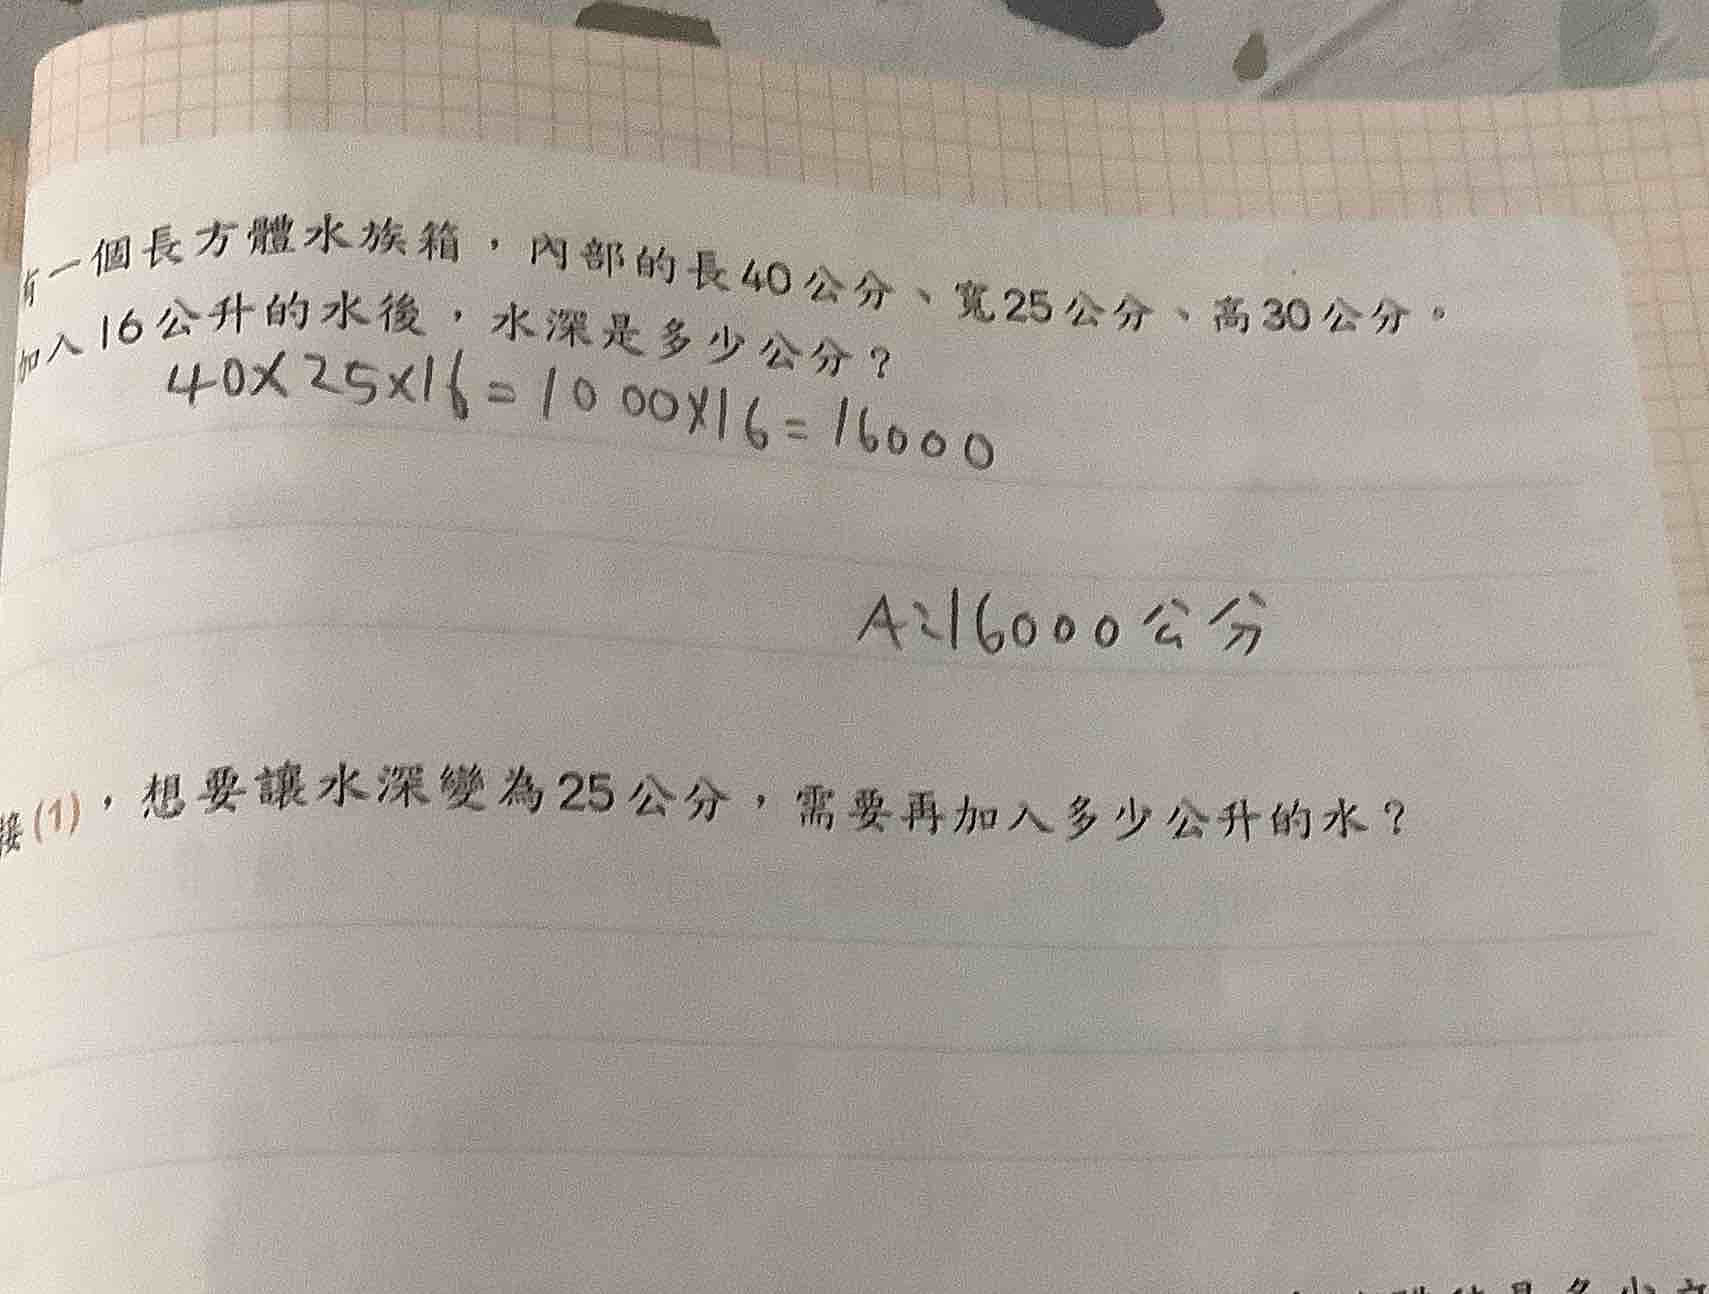 有一個長方體水族箱，內部的長40公分、寬25公分、高30公分。
加入16公升的水後，水深是多少公分？
40×25×16=1000×16=16000
A:16000公分
接(1)，想要讓水深變為25公分，需要再加入多少公升的水？